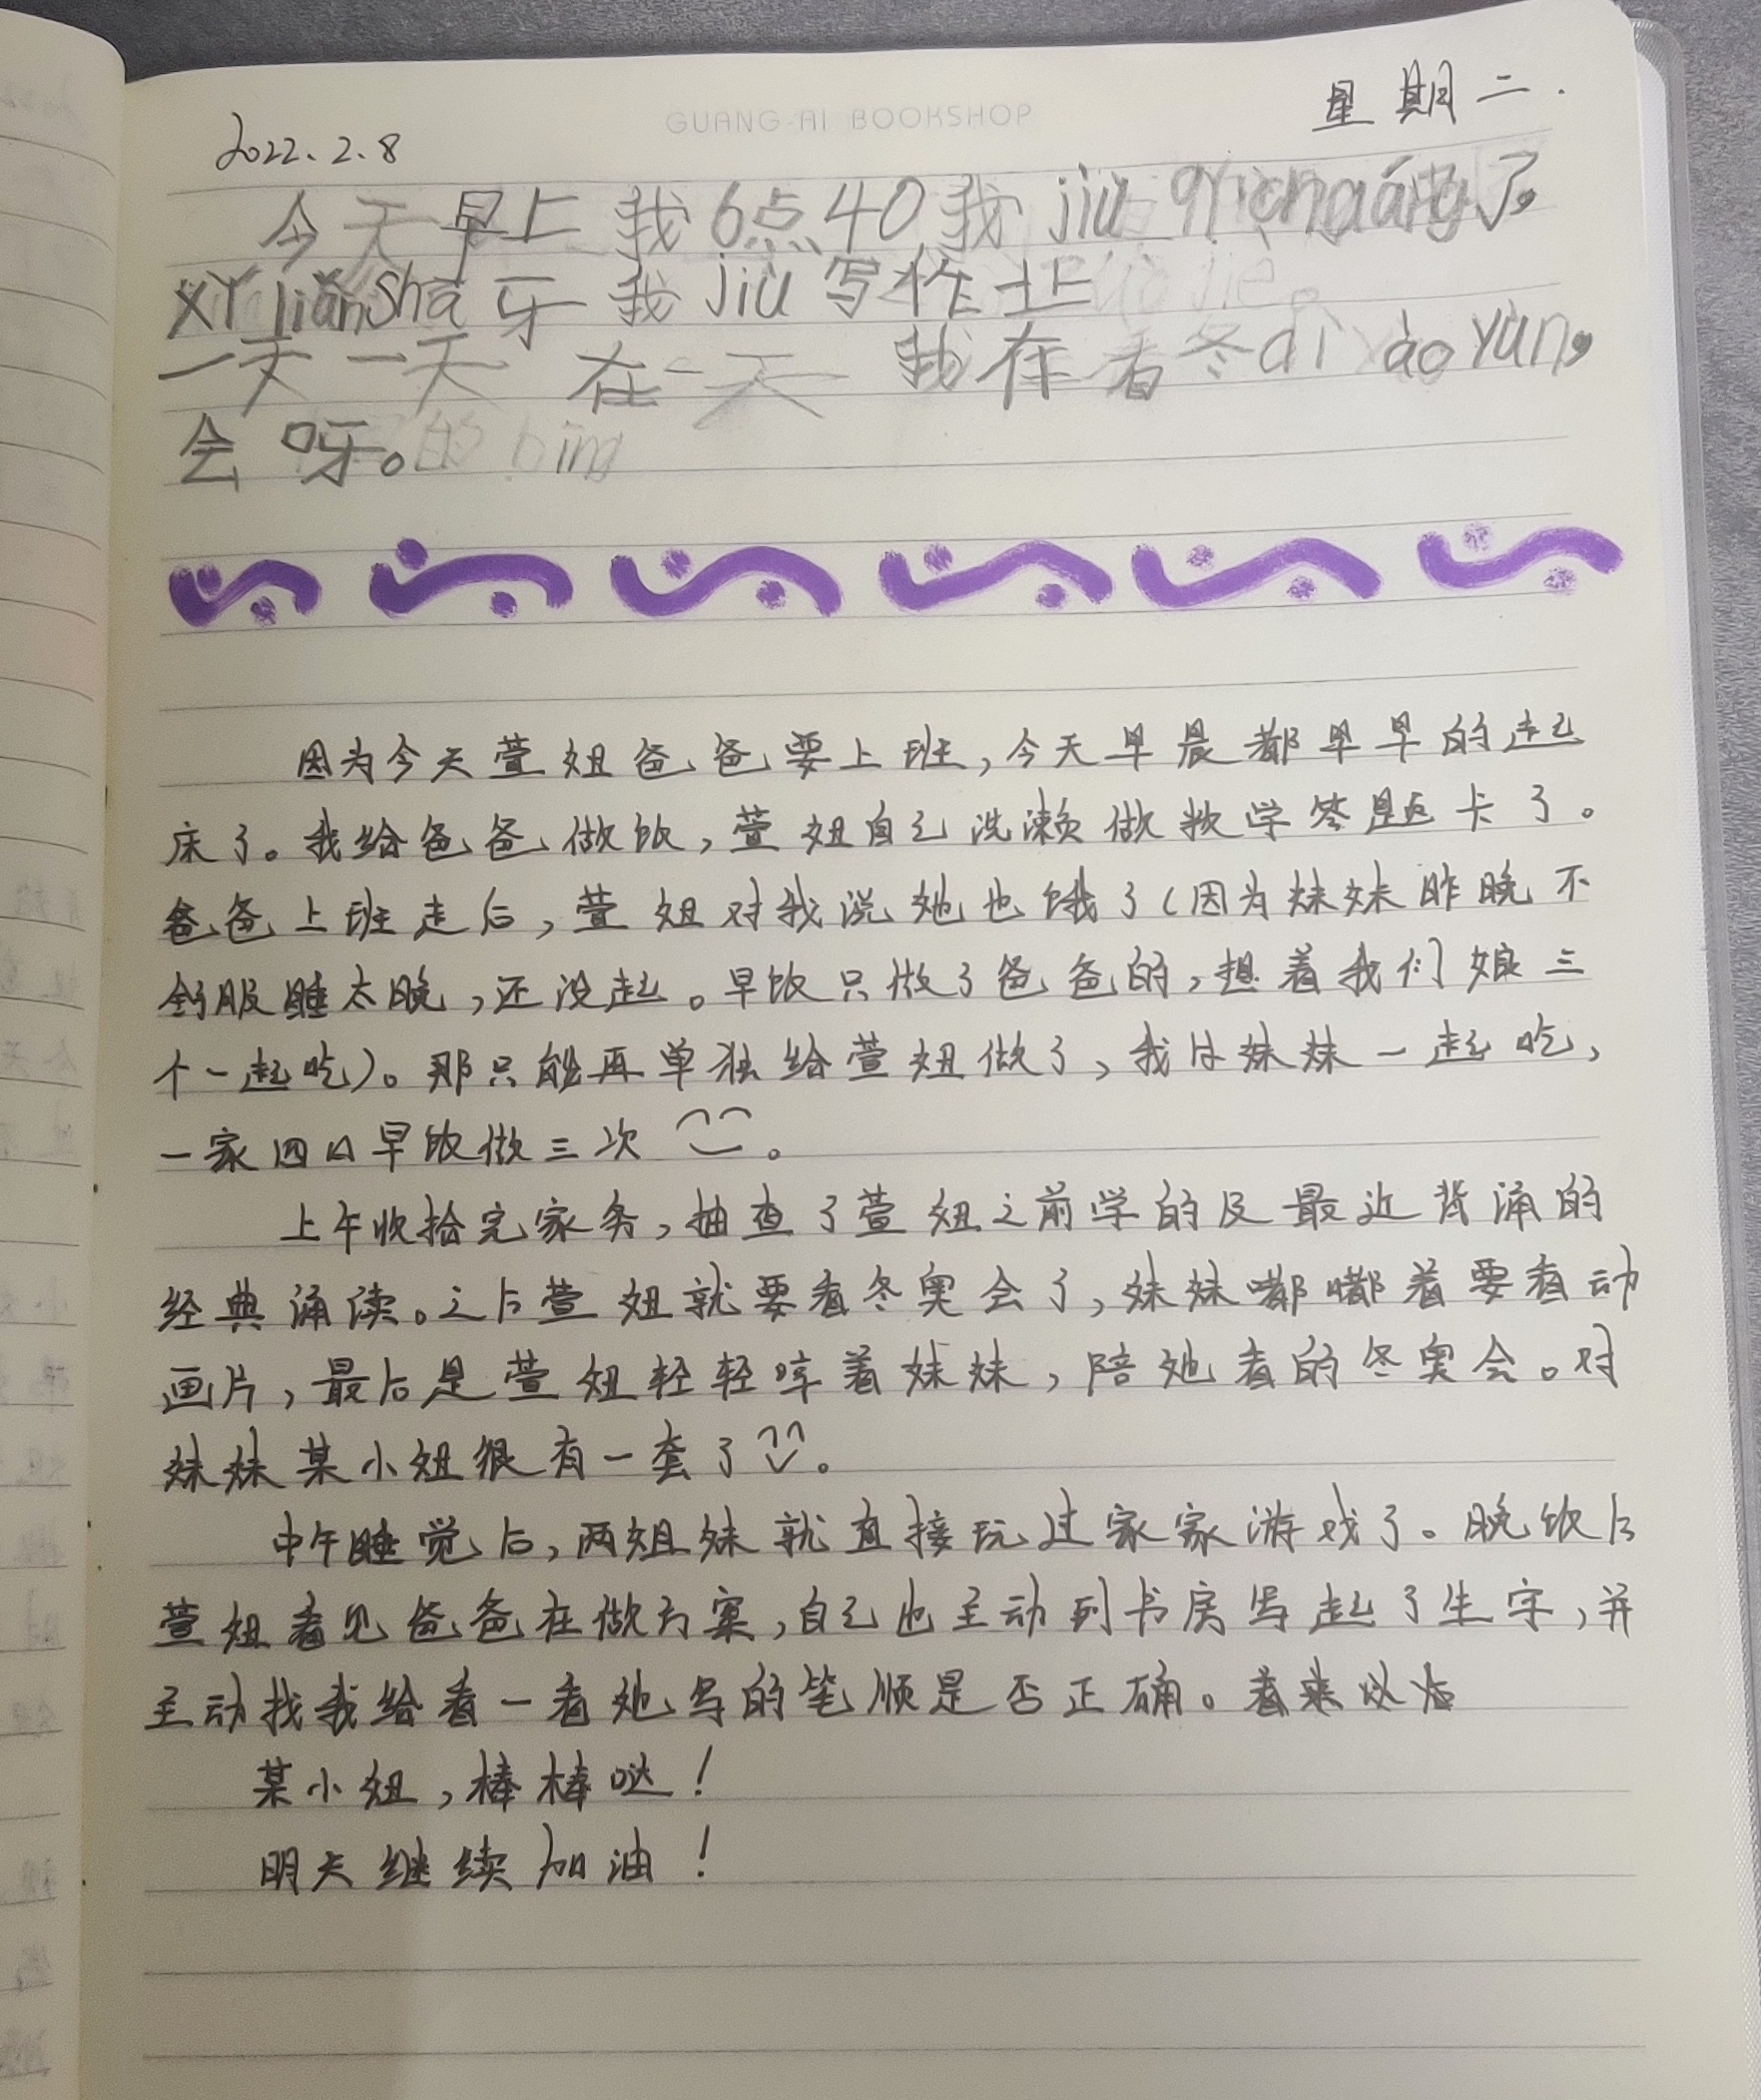 GUANG-AI BOOKSHOP
2022.2.8 星期二.
今天早上我6点40我jiu qichuáng了,
xǐ liǎn shuā 牙我jiù写作业
一天一天在一天我在看冬di ào yùn,
会呀。
因为今天萱姐爸爸要上班,今天早晨都早早的起
床了。我给爸爸做饭,萱姐自己洗漱做数学答题卡了。
爸爸上班走后,萱姐对我说她也饿了(因为妹妹昨晚不
舒服睡太晚,还没起。早饭只做了爸爸的,想着我们娘三
个一起吃)。那只能再单独给萱姐做了,我与妹妹一起吃,
一家四口早饭做三次。
上午收拾完家务,抽查了萱姐之前学的及最近背诵的
经典诵读。之后萱姐就要看冬奥会了,妹妹嘟嘟着要看动
画片,最后是萱姐轻轻哼着妹妹,陪她看的冬奥会。对
妹妹某小姐很有一套了。
中午睡觉后,两姐妹就直接玩过家家游戏了。晚饭后
萱姐看见爸爸在做方案,自己也主动到书房写起了生字,并
主动找我给看一看她写的笔顺是否正确。看来以后
某小姐,棒棒哒!
明天继续加油!